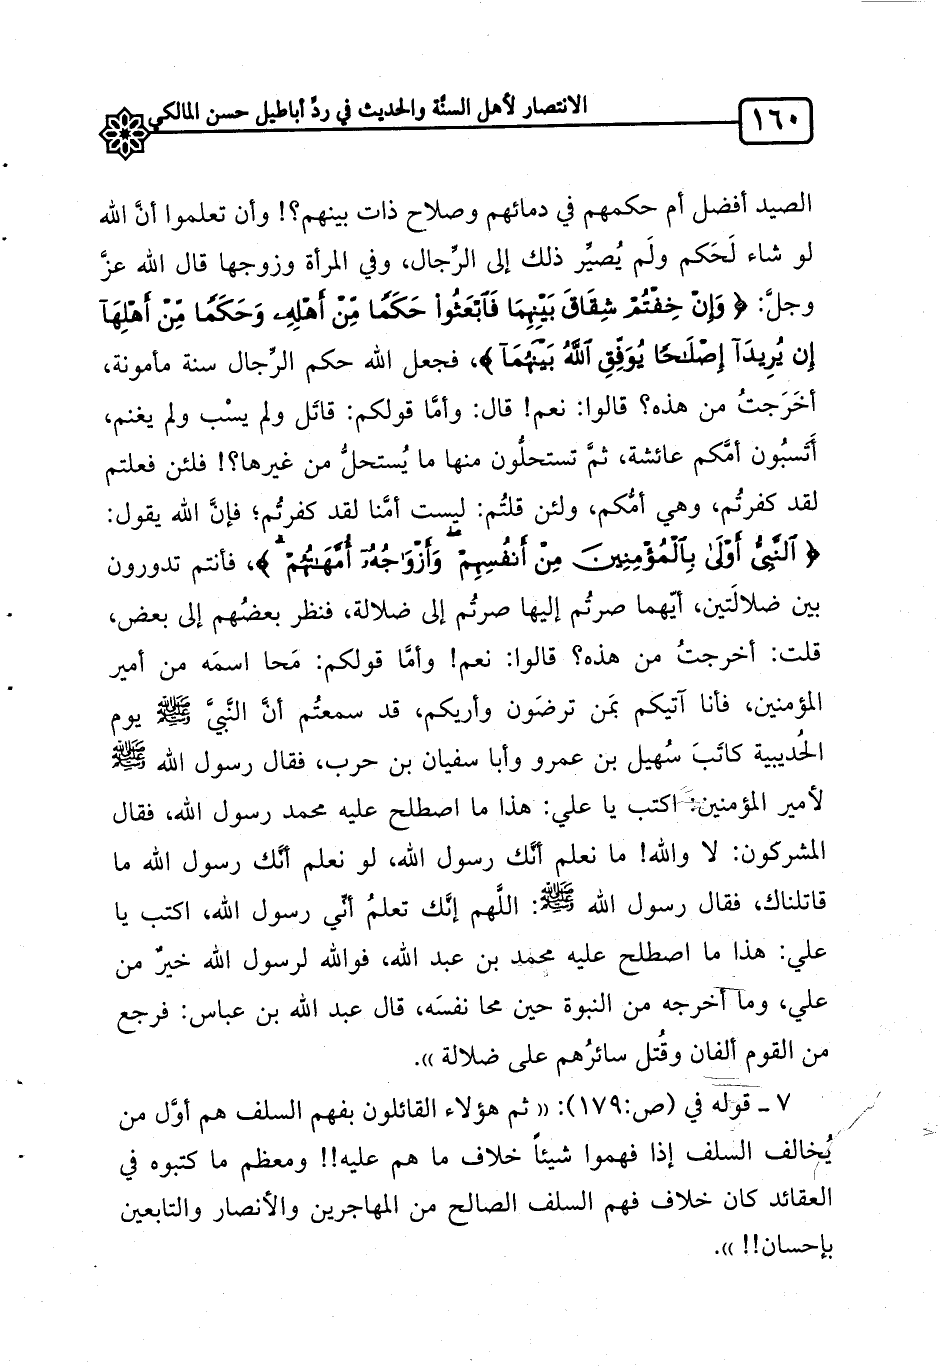 ١٦٠
الانتصار لأهل السنَّة والحديث في ردِّ أباطيل حسن المالكي
الصيد أفضل أم حكمهم في دمائهم وصلاح ذات بينهم؟! وأن تعلموا أنَّ الله
لو شاء لَحَكم ولَم يُصيِّر ذلك إلى الرِّجال، وفي المرأة وزوجها قال الله عزَّ
وجلَّ: ﴿ وَإِنْ خِفْتُمْ شِقَاقَ بَيْنِهِمَا فَٱبْعَثُوا۟ حَكَمًا مِّنْ أَهْلِهِۦ وَحَكَمًا مِّنْ أَهْلِهَآ
إِن يُرِيدَآ إِصْلَـٰحًا يُوَفِّقِ ٱللَّهُ بَيْنَهُمَآ ﴾، فجعل الله حكم الرِّجال سنة مأمونة،
أخَرَجتُ من هذه؟ قالوا: نعم! قال: وأمَّا قولكم: قاتَل ولم يسْب ولم يغنم،
أَتَسبُون أمَّكم عائشة، ثمَّ تستحلُّون منها ما يُستحلُّ من غيرها؟! فلئن فعلتم
لقد كفرتُم، وهي أمُّكم، ولئن قلتُم: ليست أمَّنا لقد كفرتُم؛ فإنَّ الله يقول:
﴿ ٱلنَّبِىُّ أَوْلَىٰ بِٱلْمُؤْمِنِينَ مِنْ أَنفُسِهِمْ ۖ وَأَزْوَٰجُهُۥٓ أُمَّهَـٰتُهُمْ ۗ ﴾، فأنتم تدورون
بين ضلالَتين، أيّهما صرتُم إليها صرتُم إلى ضلالة، فنظر بعضُهم إلى بعض،
قلت: أخرجتُ من هذه؟ قالوا: نعم! وأمَّا قولكم: مَحا اسمَه من أمير
المؤمنين، فأنا آتيكم بمَن ترضَون وأريكم، قد سمعتُم أنَّ النَّبيَّ ﷺ يوم
الحُديبية كاتَبَ سُهيل بن عمرو وأبا سفيان بن حرب، فقال رسول الله ﷺ
لأمير المؤمنين: اكتب يا علي: هذا ما اصطلح عليه محمد رسول الله، فقال
المشركون: لا والله! ما نعلم أنَّك رسول الله، لو نعلم أنَّك رسول الله ما
قاتلناك، فقال رسول الله ﷺ: اللَّهم إنَّك تعلمُ أنّي رسول الله، اكتب يا
علي: هذا ما اصطلح عليه محمد بن عبد الله، فوالله لرسول الله خيرٌ من
علي، وما أخرجه من النبوة حين محا نفسَه، قال عبد الله بن عباس: فرجع
من القوم ألفان وقُتل سائرُهم على ضلالة )).
٧ ـ قوله في (ص:١٧٩): (( ثم هؤلاء القائلون بفهم السلف هم أوَّل من
يُخالف السلف إذا فهموا شيئاً خلاف ما هم عليه!! ومعظم ما كتبوه في
العقائد كان خلاف فهم السلف الصالح من المهاجرين والأنصار والتابعين
بإحسان!! )).